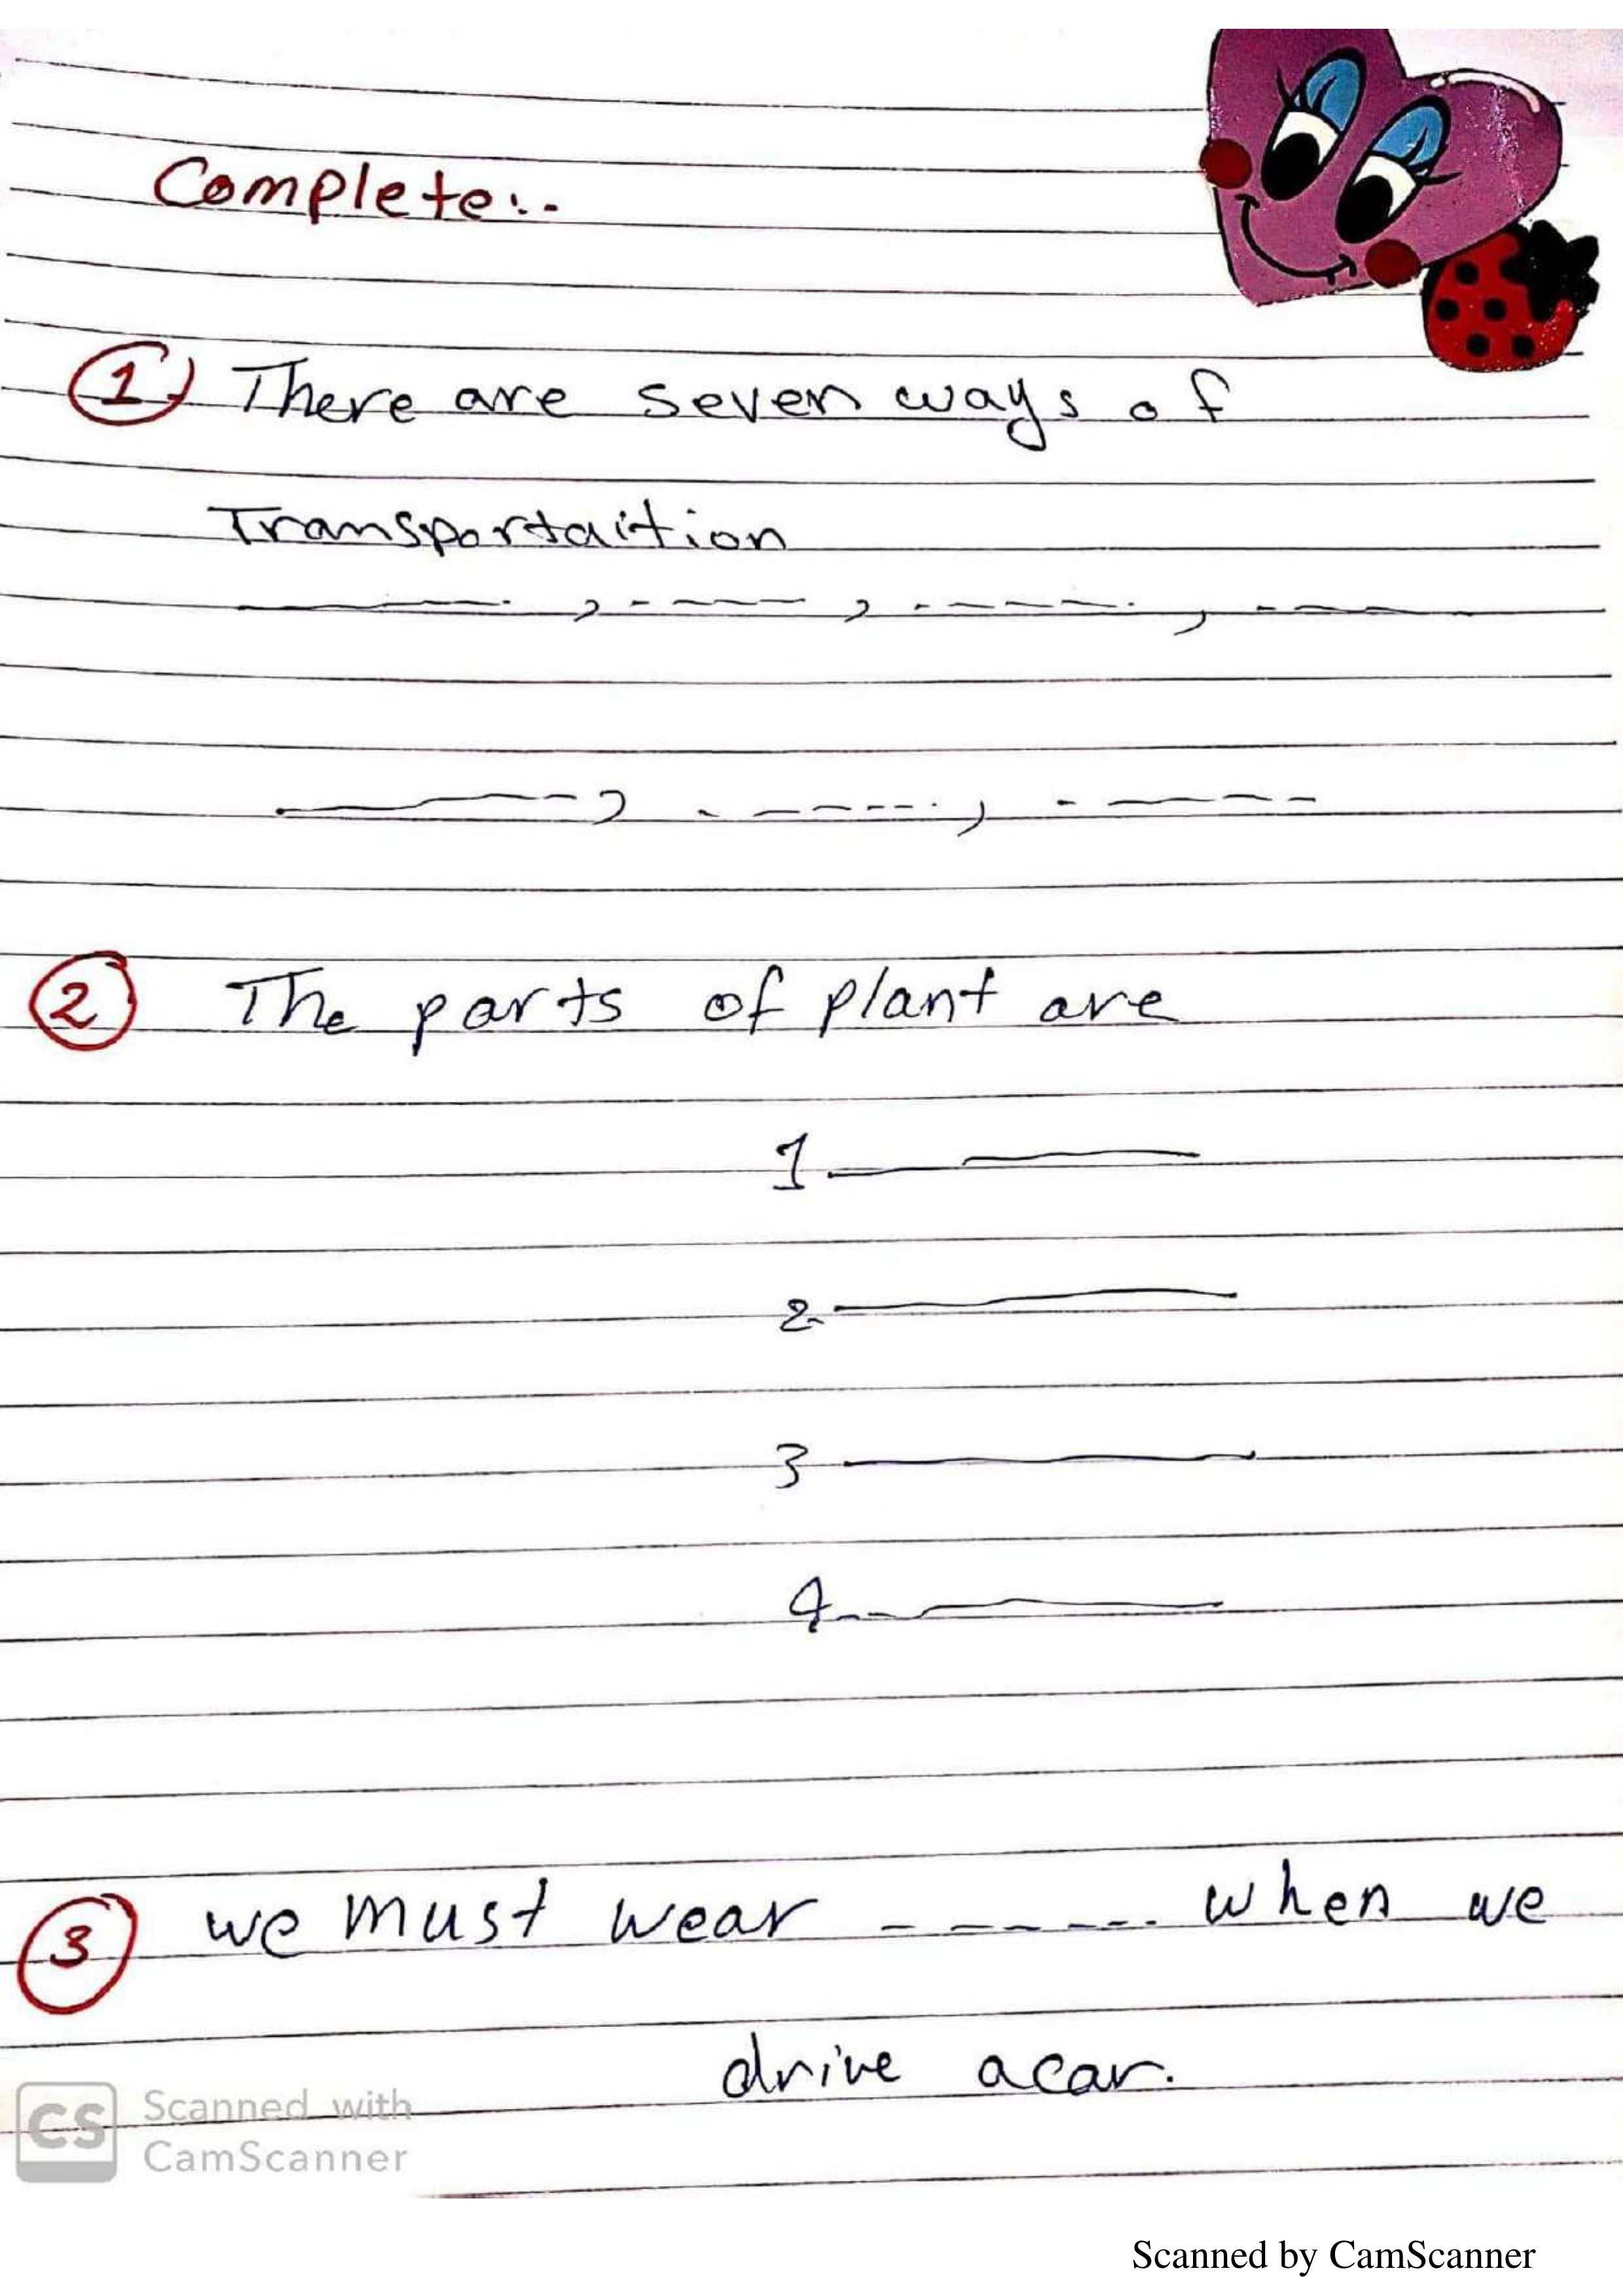 Complete:-
1) There are seven ways of
Transportaition
------, ------, ------, ------
------, ------, ------
2 The parts of plant are
1 ------
2- ------
3 ------
4 ------
3 we must wear ------ when we
drive acar.
CS Scanned with
CamScanner
Scanned by CamScanner